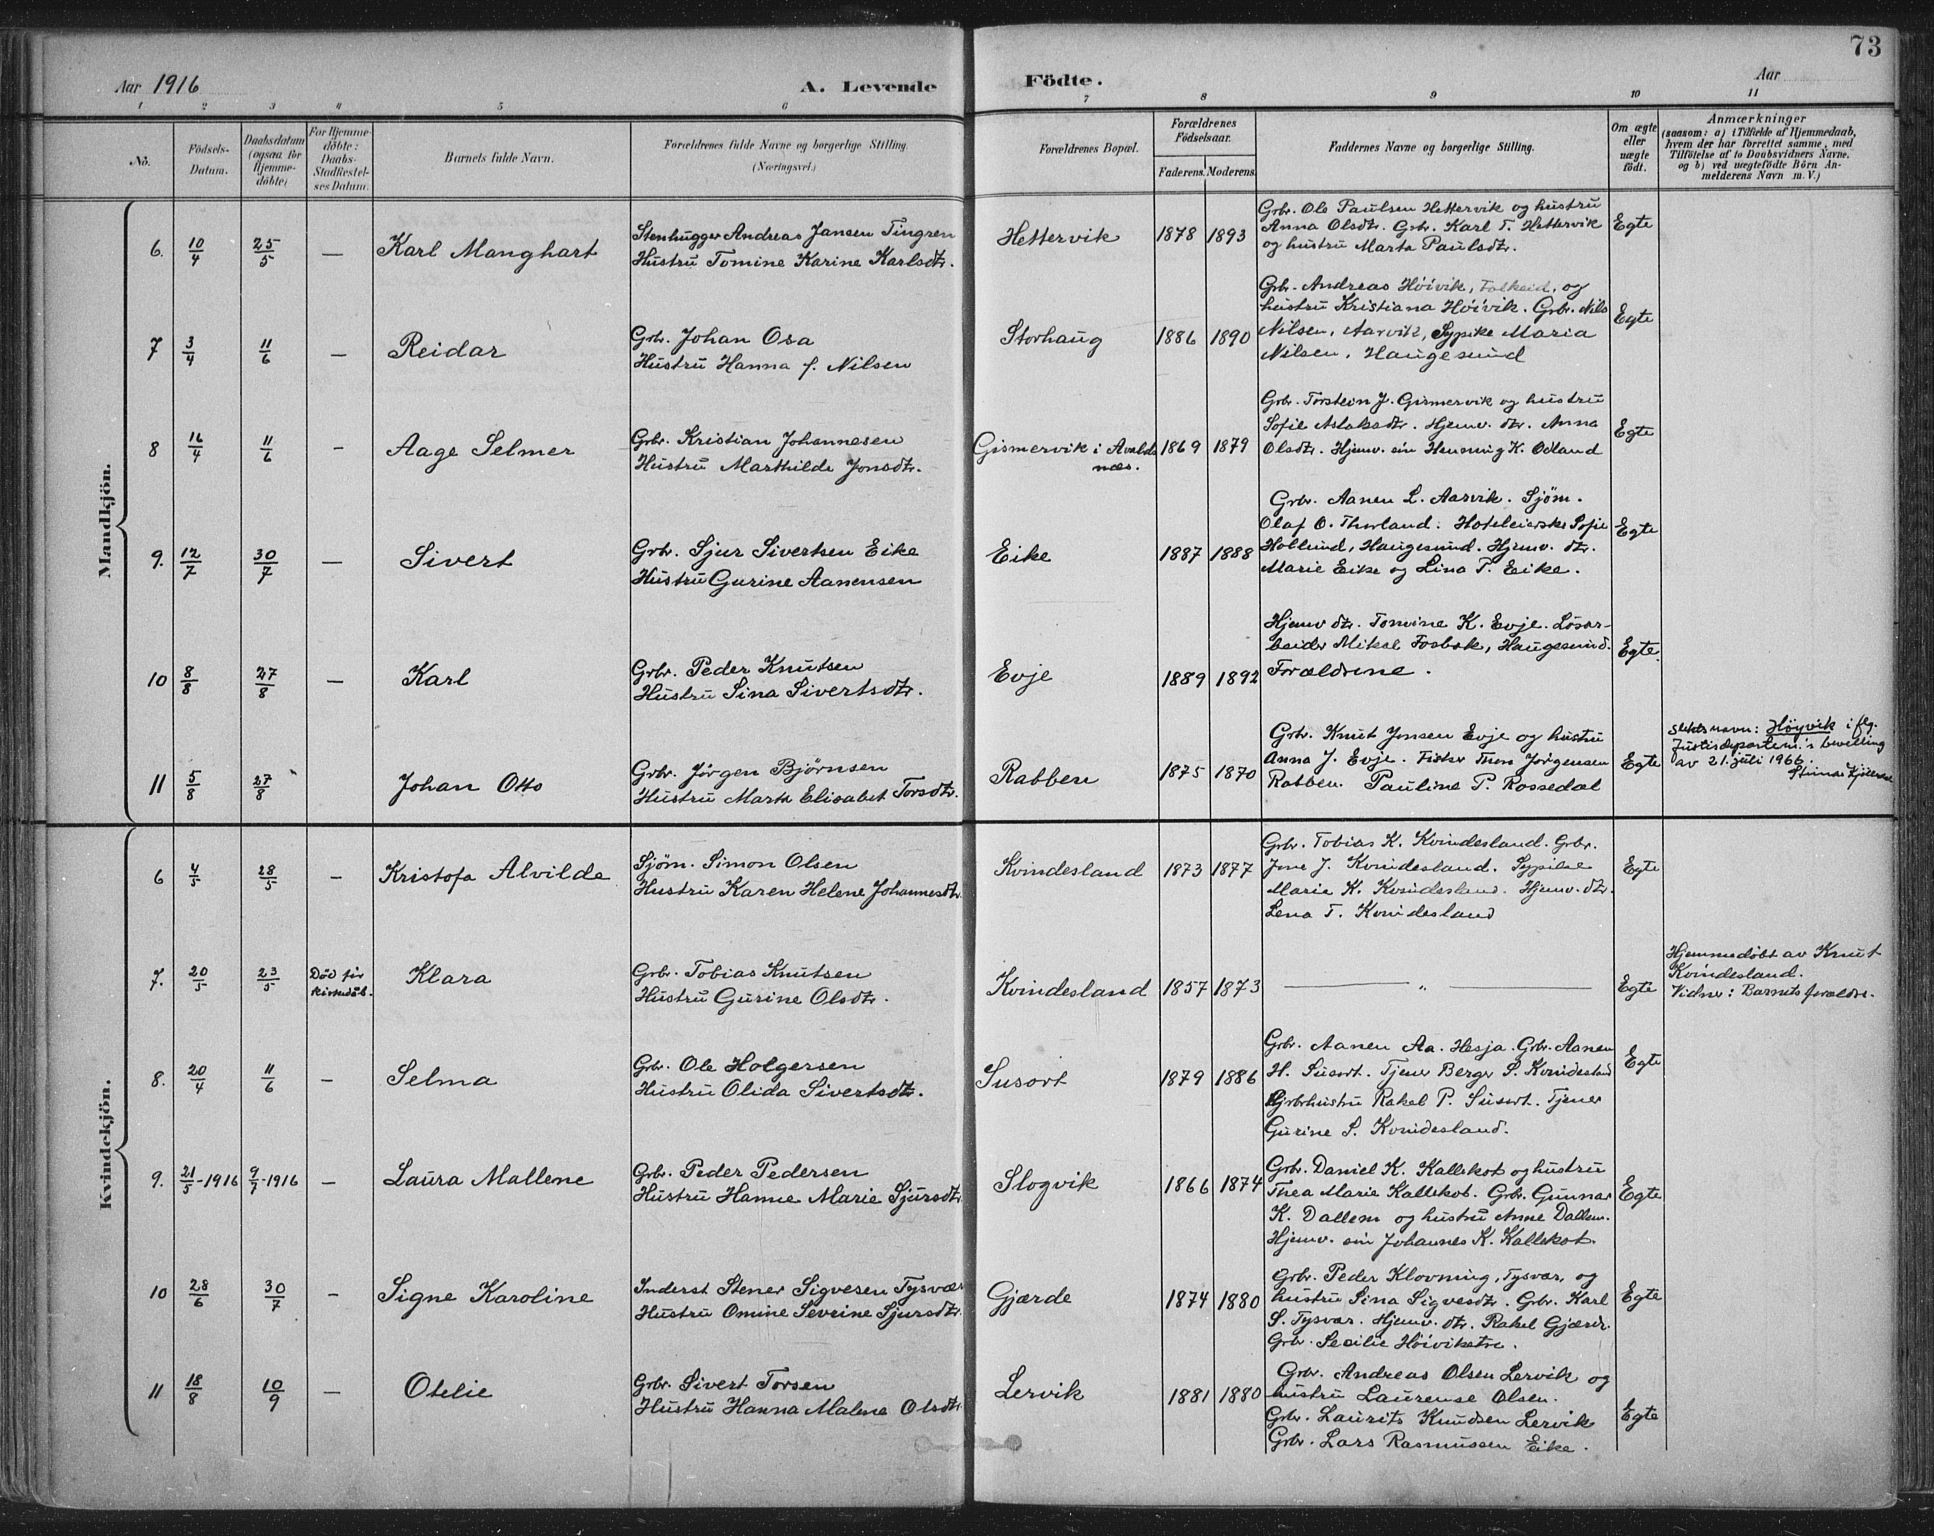 73
Aar 1916
A. Levende
Födte.
Aar
1 2 3 4 5 6 7 8 9 10 11
No.
Födsels-
Datum.
Daabsdatum
(ogsaa for
Hjemme-
döbte)
For Hjemme-
döbte:
Daabs-
Stadfæstel-
ses Datum.
Barnets fulde Navn.
Forældrenes fulde Navne og borgerlige Stilling.
(Næringsvei.)
Forældrenes Bopæl.
Forældrenes
Födselsaar.
Faderens. Moderens.
Faddernes Navne og borgerlige Stilling.
Om ægte
eller
uægte
födt.
Anmærkninger
(saasom: a) i Tilfælde af Hjemmedaab,
hvem der har forrettet samme, med
Tilföielse af to Daabsvidners Navne,
og b) ved uægtefödte Börn An-
melderens Navn m. V.)
Mandkjön.
6. 10/4 25/5 — Karl Manghart
Stenhugger Andreas Jansen Tingren
Hustru Tomine Karine Karlsdtr.
Hettervik 1878 1893
Grbr. Ole Paulsen Hettervik og hustru
Anna Olsdtr. Grbr. Karl T. Hettervik
og hustru Marta Paulsdtr.
Egte
7 3/4 11/6 — Reidar
Grbr. Johan Osa
Hustru Hanna f. Nilsen
Storhaug 1886 1890
Grbr. Andreas Høivik, Falkeid, og
hustru Kristiana Høivik. Grbr. Nils
Nilsen, Aarvik, Sypike Maria
Nilsen, Haugesund
Egte
8 16/4 11/6 — Aage Selmer
Grbr. Kristian Johannesen
Hustru Marthilde Jonsdtr.
Gismervik i Avalds
næs. 1869 1879
Grbr. Torstein J. Gismervik og hustru
Sofie Aslaksdtr. Hjemv. dtr. Anna
Olsdtr. Hjemv. søn Henning K. Ødland
Egte
9. 12/7 30/7 — Sivert
Grbr. Sjur Sivertsen Eike
Hustru Gurine Aanensen
Eike 1887 1888
Grbr. Aanen L. Aarvik. Sjøm.
Olaf O. Thorland. Hoteleierske Sofie
Hollund, Haugesund. Hjemv. dtr.
Marie Eike og Lina T. Eike.
Egte
10 8/8 27/8 — Karl
Grbr. Peder Knutsen
Hustru Sina Sivertsdtr.
Evje 1889 1892
Hjemv dtr. Tomine K. Evje. Løsar-
beider Mikal Fosbak, Haugesund.
Forældrene.
Egte.
11 5/8 27/8 Johan Otto
Grbr. Jørgen Bjørnsen
Hustru Marta Elisabet Torsdtr.
Rabben 1875 1870
Grbr. Knut Jonsen Evje og hustru
Anna J. Evje. Fisker Jørgensen
Rabben. Pauline P. Rossedal
Egte
Slektsnavn: Høyvik i flg.
Justisdepartem.'s bevilling
av 21. juli 1966.
Kvindekjön.
6 4/5 28/5 — Kristofa Alvilde
Sjøm. Simon Olsen
Hustru Karen Helene Johannesdtr.
Kvindesland 1873 1877
Grbr. Tobias K. Kvindesland. Grbr.
Jone J. Kvindesland. Sypike
Marie K. Kvindesland. Hjemv. dtr.
Lena T. Kvindesland
Egte
7. 20/5 23/5 Død før
kirkedåb. Klara
Grbr. Tobias Knutsen
Hustru Gurine Olsdtr.
Kvindesland 1857 1873
— " —
Egte
Hjemmedøbt av Knut
Kvindesland.
Vidner: Barnets forældre.
8. 20/4 11/6 — Selma
Grbr. Ole Holgersen
Hustru Olida Sivertsdtr.
Susort 1879 1886
Grbr. Aanen Aa. Hesja. Grbr. Aanen
H. Susort. Tjener Berge S. Kvindesland
Grbrhustru Rakel P. Susort. Tjener
Gurine S. Kvindesland.
Egte
9. 21/5-1916 9/7-1916 — Laura Mallene
Grbr. Peder Pedersen
Hustru Hanne Marie Sjursdtr.
Slogvik 1866 1874
Grbr. Daniel K. Kallekot og hustru
Thea Marie Kallekot. Grbr. Gunnar
K. Dallem og hustru Anne Dallem.
Hjemv. søn Johannes K. Kallekot.
Egte
10 28/6 30/7 — Signe Karoline
Inderst Stener Sigvesen Tysvær
Hustru Omine Severine Sjursdtr.
Gjærde 1874 1880
Grbr. Peder Klovning, Tysvær, og
hustru Sina Sigvesdtr. Grbr. Karl
S. Tysvær. Hjemv. dtr. Rakel Gjærde.
Grbr. Secilie Høiviketre.
Egte
11 18/8 10/9 — Otelie
Grbr. Sivert Torsen
Hustru Hanna Malene Olsdtr.
Lervik 1881 1880
Grbr. Andreas Olsen Lervik og
hustru Laurense Olsen.
Grbr. Laurits Knudsen Lervik
Grbr. Lars Rasmussen Eike.
Egte